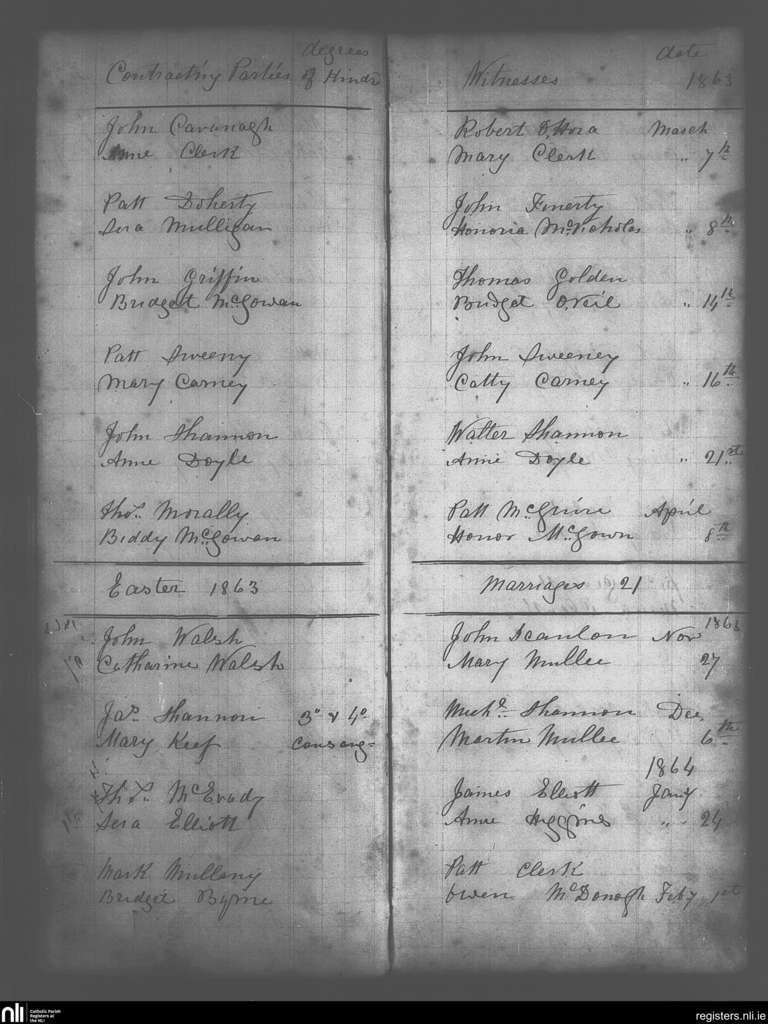 Contracting Parties degrees of Kindr
Witnesses date 1863
John Cavanagh
Anne Clerk
Robert O,Hora March
Mary Clerk " 7th
Patt Doherty
Sera Mulligan
John Finerty
Honoria McNicholas " 8th
John Griffin
Bridget McGowan
Thomas Golden
Bridget O,Neil " 14th
Patt Sweeny
Mary Carney
John Sweeney
Catty Carney " 16th
John Shannon
Anne Doyle
Walter Shannon
Anne Doyle " 21st
Thos. Morally
Biddy McGowan
Patt McGuire April
Honor McGown 8th
Easter 1863
Marriages 21
John Walsh
Catharine Walsh
1863
John Scanlon Nov
Mary Mullee 27
Jas. Shannon 3o & 4o
Mary Keef consang=
Michl. Shannon Dec,
Martin Mullee 6th
1864
Thos. McEvady
Sera Elliott
James Elliott Jany
Anne Higgins " 24
Mark Mullany
Bridget Byrne
Patt Clerk
Owen McDonogh Feby 1st
nli
Catholic Parish
Registers at
the NLI
registers.nli.ie